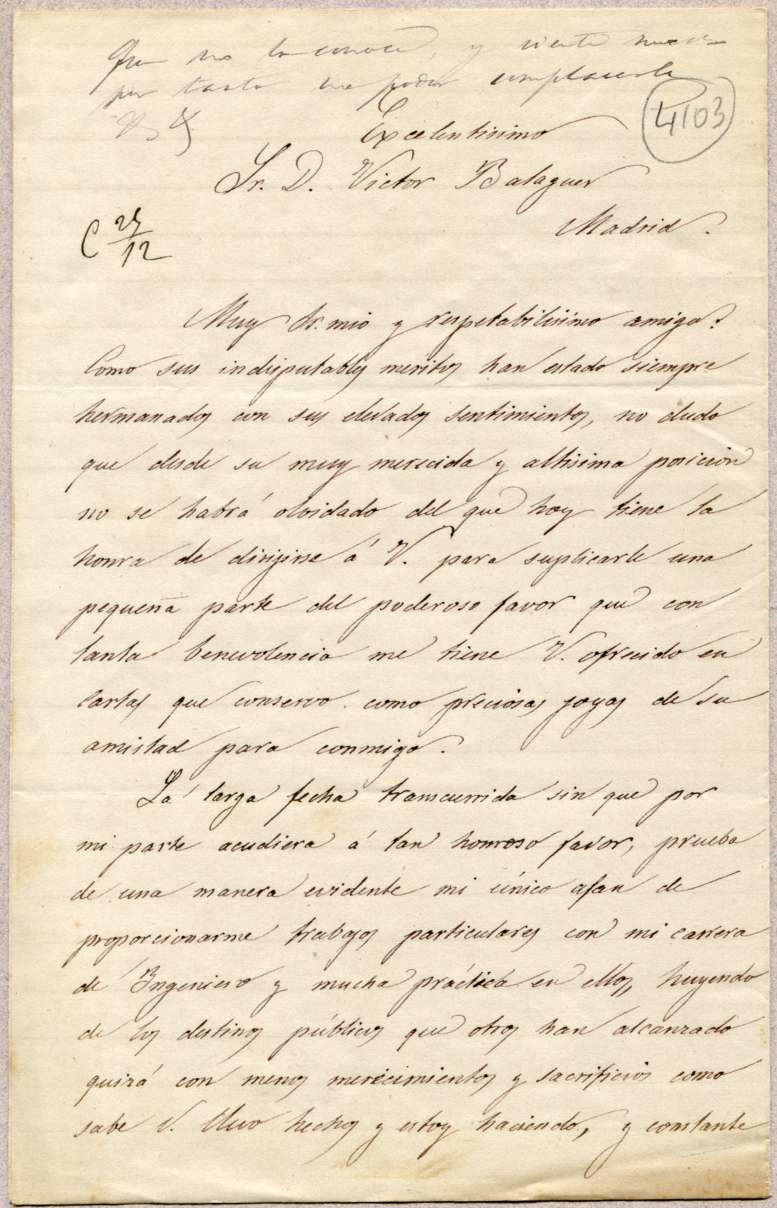 Que no lo conoce, y siente mucho
por tanto no poder complacerle
4103
Excelentisimo
Sr. D. Victor Balaguer
Madrid.
C 24/12
Muy Sr. mio y respetabilisimo amigo:
Como sus indisputables meritos han estado siempre
hermanados con sus elevados sentimientos, no dudo
que desde su muy merecida y altisima posicion
no se habrá olvidado del que hoy tiene la
honra de dirigirse á V. para suplicarle una
pequeña parte del poderoso favor que con
tanta benevolencia me tiene V. ofrecido en
cartas que conservo como preciosas joyas de su
amistad para conmigo.
La larga fecha transcurrida sin que por
mi parte acudiera á tan honroso favor, prueba
de una manera evidente mi único afan de
proporcionarme trabajos particulares con mi carrera
de Ingeniero y mucha práctica en ellos, huyendo
de los destinos públicos que otros han alcanzado
quizá con menos merecimientos y sacrificios como
sabe V. llevo hechos y estoy haciendo, y constante